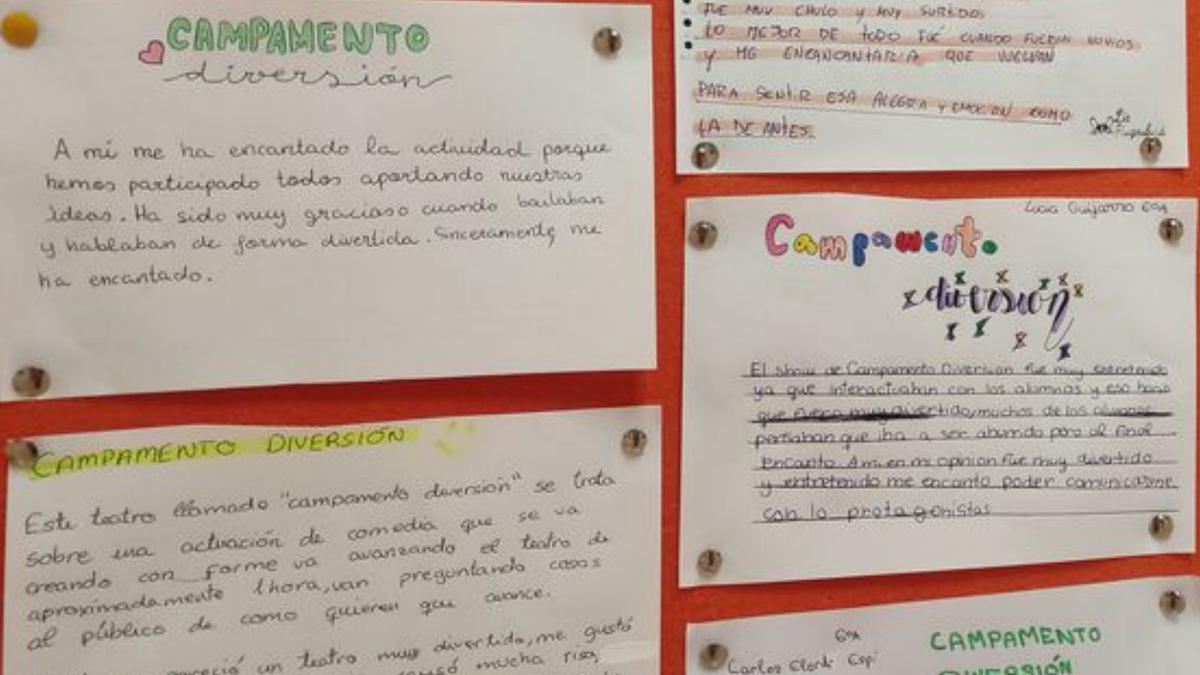 CAMPAMENTO
diversión
A mí me ha encantado la actividad porque
hemos participado todos aportando nuestras
ideas. Ha sido muy gracioso cuando bailaban
y hablaban de forma divertida. Sinceramente me
ha encantado.
CAMPAMENTO DIVERSIÓN
Este teatro llamado "campamento diversión" se trata
sobre una actuación de comedia que se va
creando con forme va avanzando el teatro de
aproximadamente 1hora, van preguntando cosas
al público de como quieren que avance.
un teatro muy divertido, me gustó
mucha risa,
FUE MUY CHULO y MUY SURTIDO.
LO MEJOR DE TODO FUÉ CUANDO FUERON NOVIOS
y ME ENCANCANTARIA QUE VUELVAN
PARA SENTIR ESA ALEGRA y EMOCION COMO
LA DE ANTES.
Lucía Guijarro 6ºA
Campamento
diversión
El show de Campamento Diversion fue muy entretenido
ya que interactuaban con los alumnos y eso hizo
que divertido, muchos de los
pensaban que iba a ser aburrido pero al final
encanto. A mi en mi opinion fue muy divertido
y entretenido me encanto poder comunicarme
con lo protagonistas
6ºA
Carlos
CAMPAMENTO
DIVERSIÓN